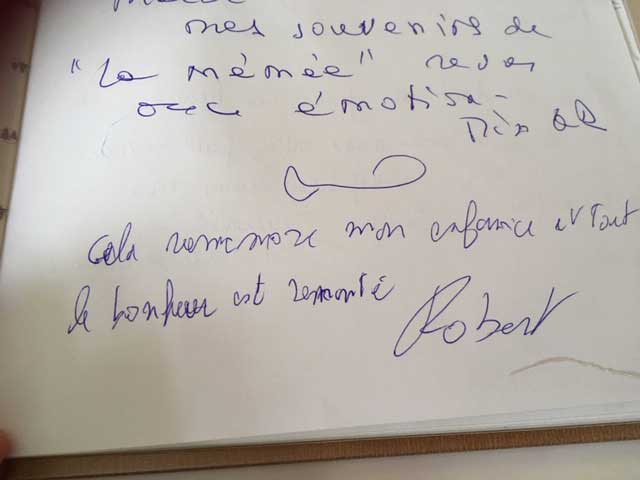 mes souvenirs de
"la mémée"
avec émotion -
Cela remémore mon enfance et tout
le bonheur est remonté
Robert